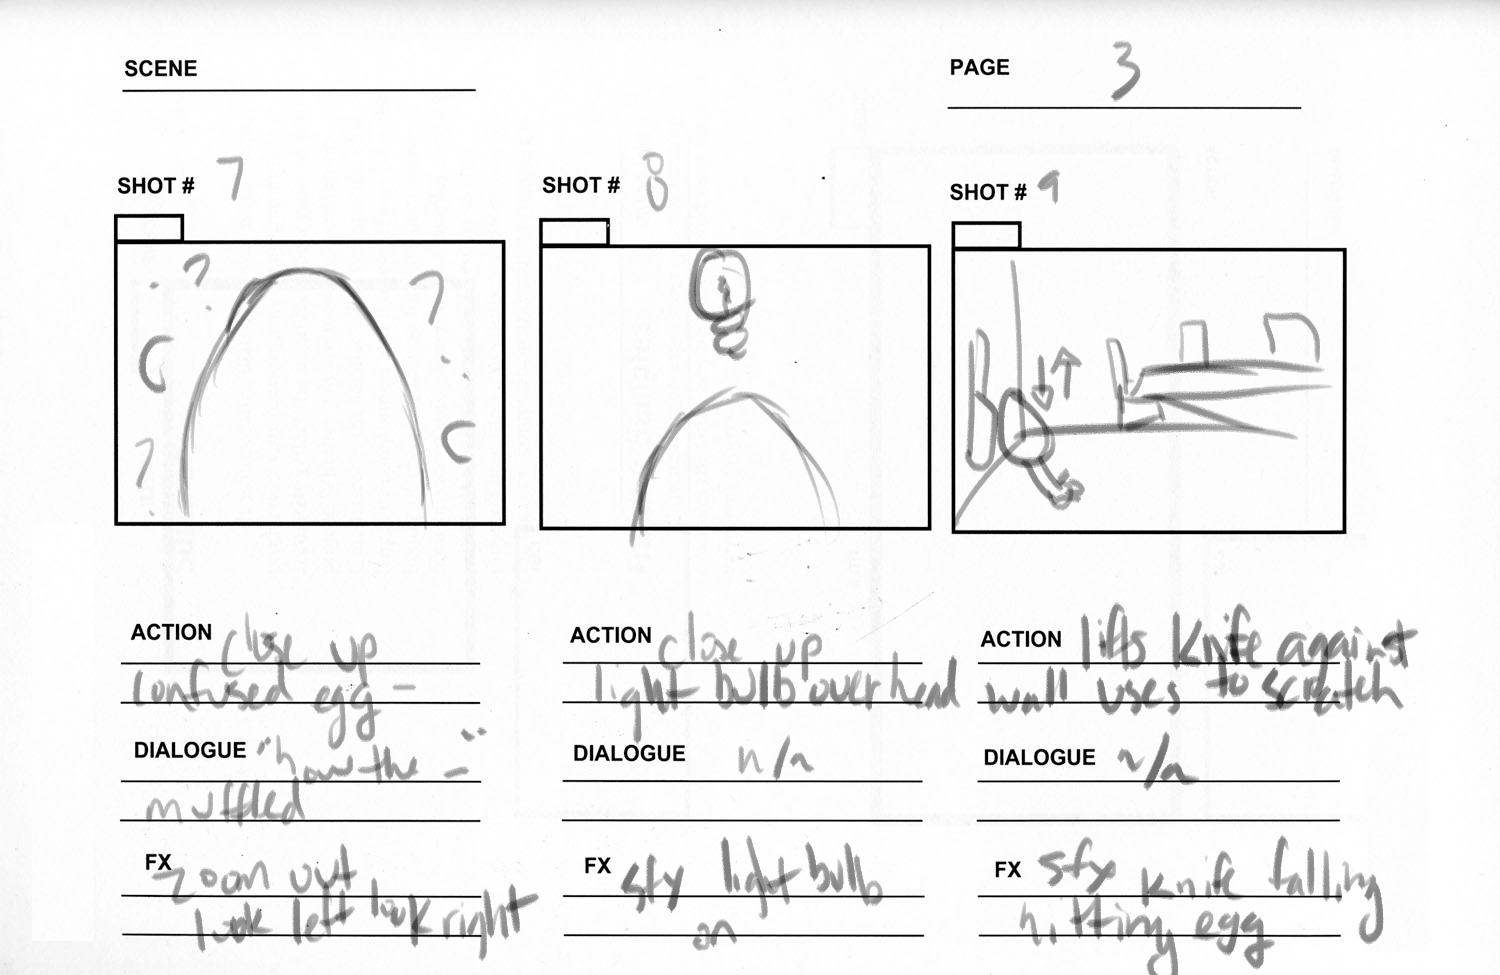 SCENE
PAGE 3
SHOT # 7
? ?
?
ACTION close up
confused egg -
DIALOGUE "how the - "
muffled
FX zoom out
look left look right
SHOT # 8
ACTION close up
light bulb over head
DIALOGUE n/a
FX sfx light bulb
on
SHOT # 9
ACTION lifts knife against
wall uses to scratch
DIALOGUE n/a
FX sfx knife falling
hitting egg